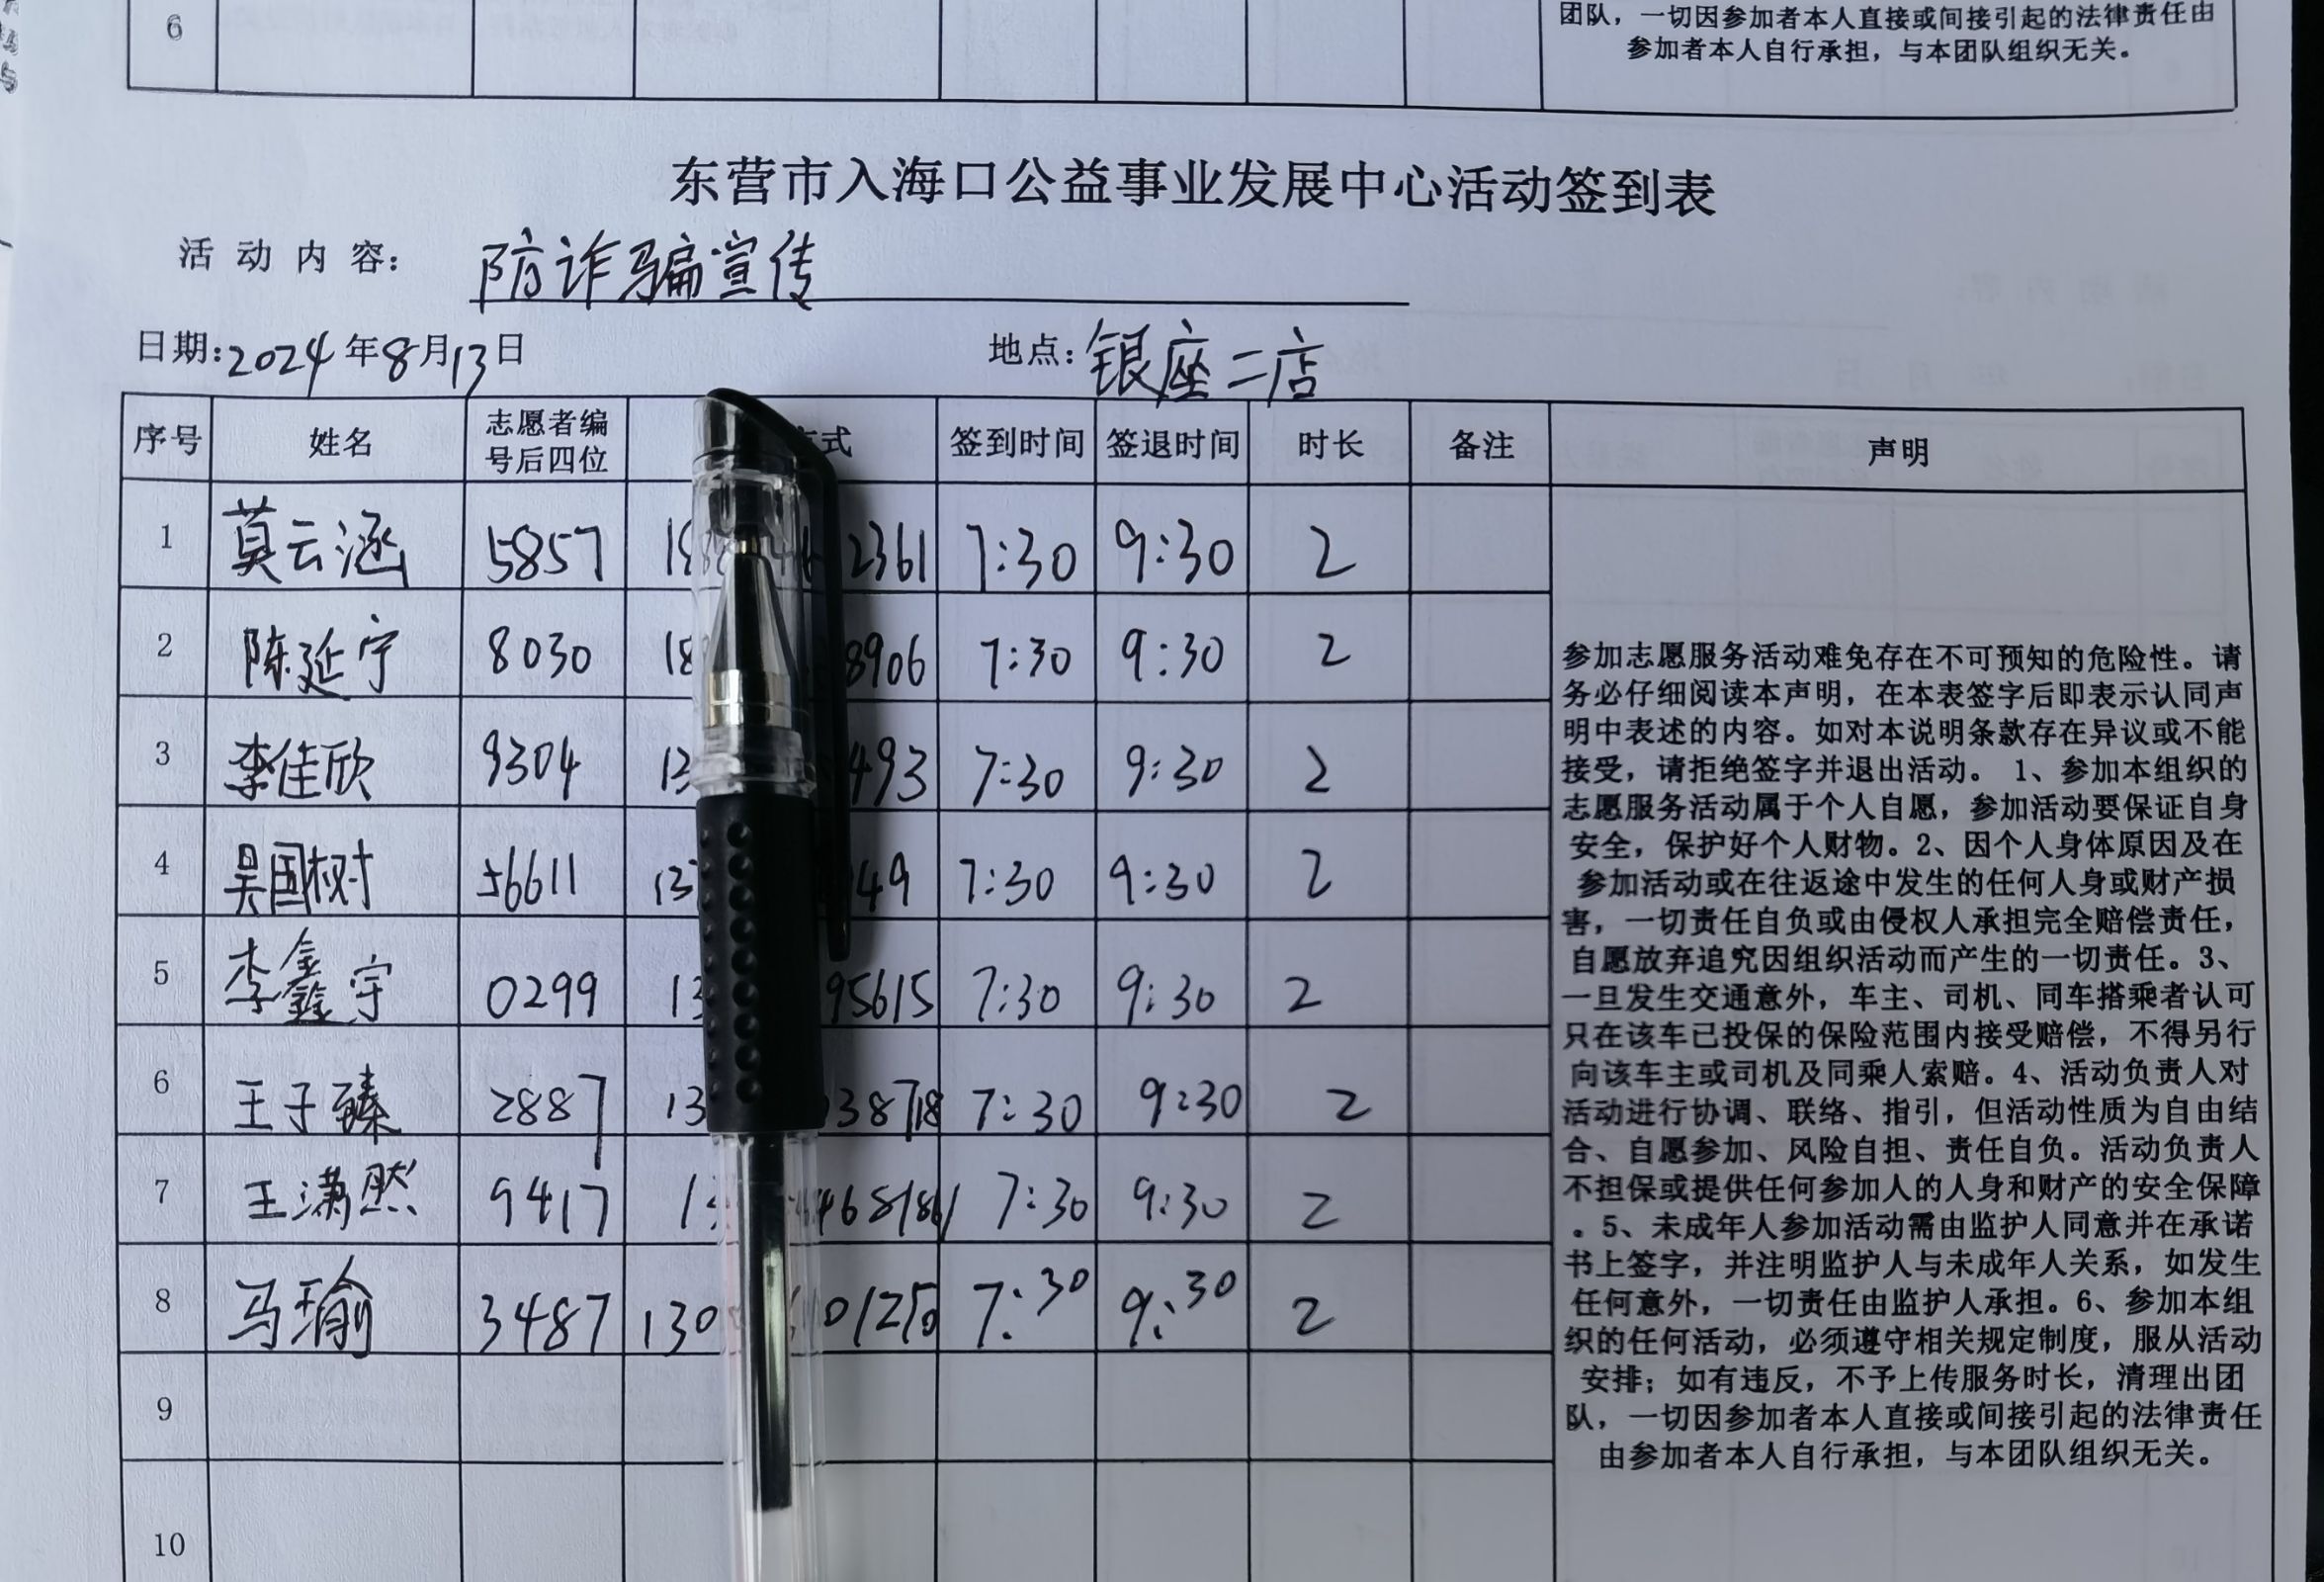 6
团队，一切因参加者本人直接或间接引起的法律责任由
参加者本人自行承担，与本团队组织无关。
东营市入海口公益事业发展中心活动签到表
活动内容：防诈骗宣传
日期：2024年8月13日 地点：银座二店
序号 姓名 志愿者编号后四位 方式 签到时间 签退时间 时长 备注 声明
1 莫云涵 5857 2361 7:30 9:30 2
2 陈延宁 8030 18 8906 7:30 9:30 2
3 李佳欣 9304 13 493 7:30 9:30 2
4 吴国树 6611 13 49 7:30 9:30 2
5 李鑫宇 0299 13 95615 7:30 9:30 2
6 王子臻 2887 13 38718 7:30 9:30 2
7 王潇然 9417 1 7:30 9:30 2
8 马瑜 3487 130 7:30 9:30 2
9
10
参加志愿服务活动难免存在不可预知的危险性。请
务必仔细阅读本声明，在本表签字后即表示认同声
明中表述的内容。如对本说明条款存在异议或不能
接受，请拒绝签字并退出活动。 1、参加本组织的
志愿服务活动属于个人自愿，参加活动要保证自身
安全，保护好个人财物。2、因个人身体原因及在
参加活动或在往返途中发生的任何人身或财产损
害，一切责任自负或由侵权人承担完全赔偿责任，
自愿放弃追究因组织活动而产生的一切责任。3、
一旦发生交通意外，车主、司机、同车搭乘者认可
只在该车已投保的保险范围内接受赔偿，不得另行
向该车主或司机及同乘人索赔。4、活动负责人对
活动进行协调、联络、指引，但活动性质为自由结
合、自愿参加、风险自担、责任自负。活动负责人
不担保或提供任何参加人的人身和财产的安全保障
。5、未成年人参加活动需由监护人同意并在承诺
书上签字，并注明监护人与未成年人关系，如发生
任何意外，一切责任由监护人承担。6、参加本组
织的任何活动，必须遵守相关规定制度，服从活动
安排；如有违反，不予上传服务时长，清理出团
队，一切因参加者本人直接或间接引起的法律责任
由参加者本人自行承担，与本团队组织无关。